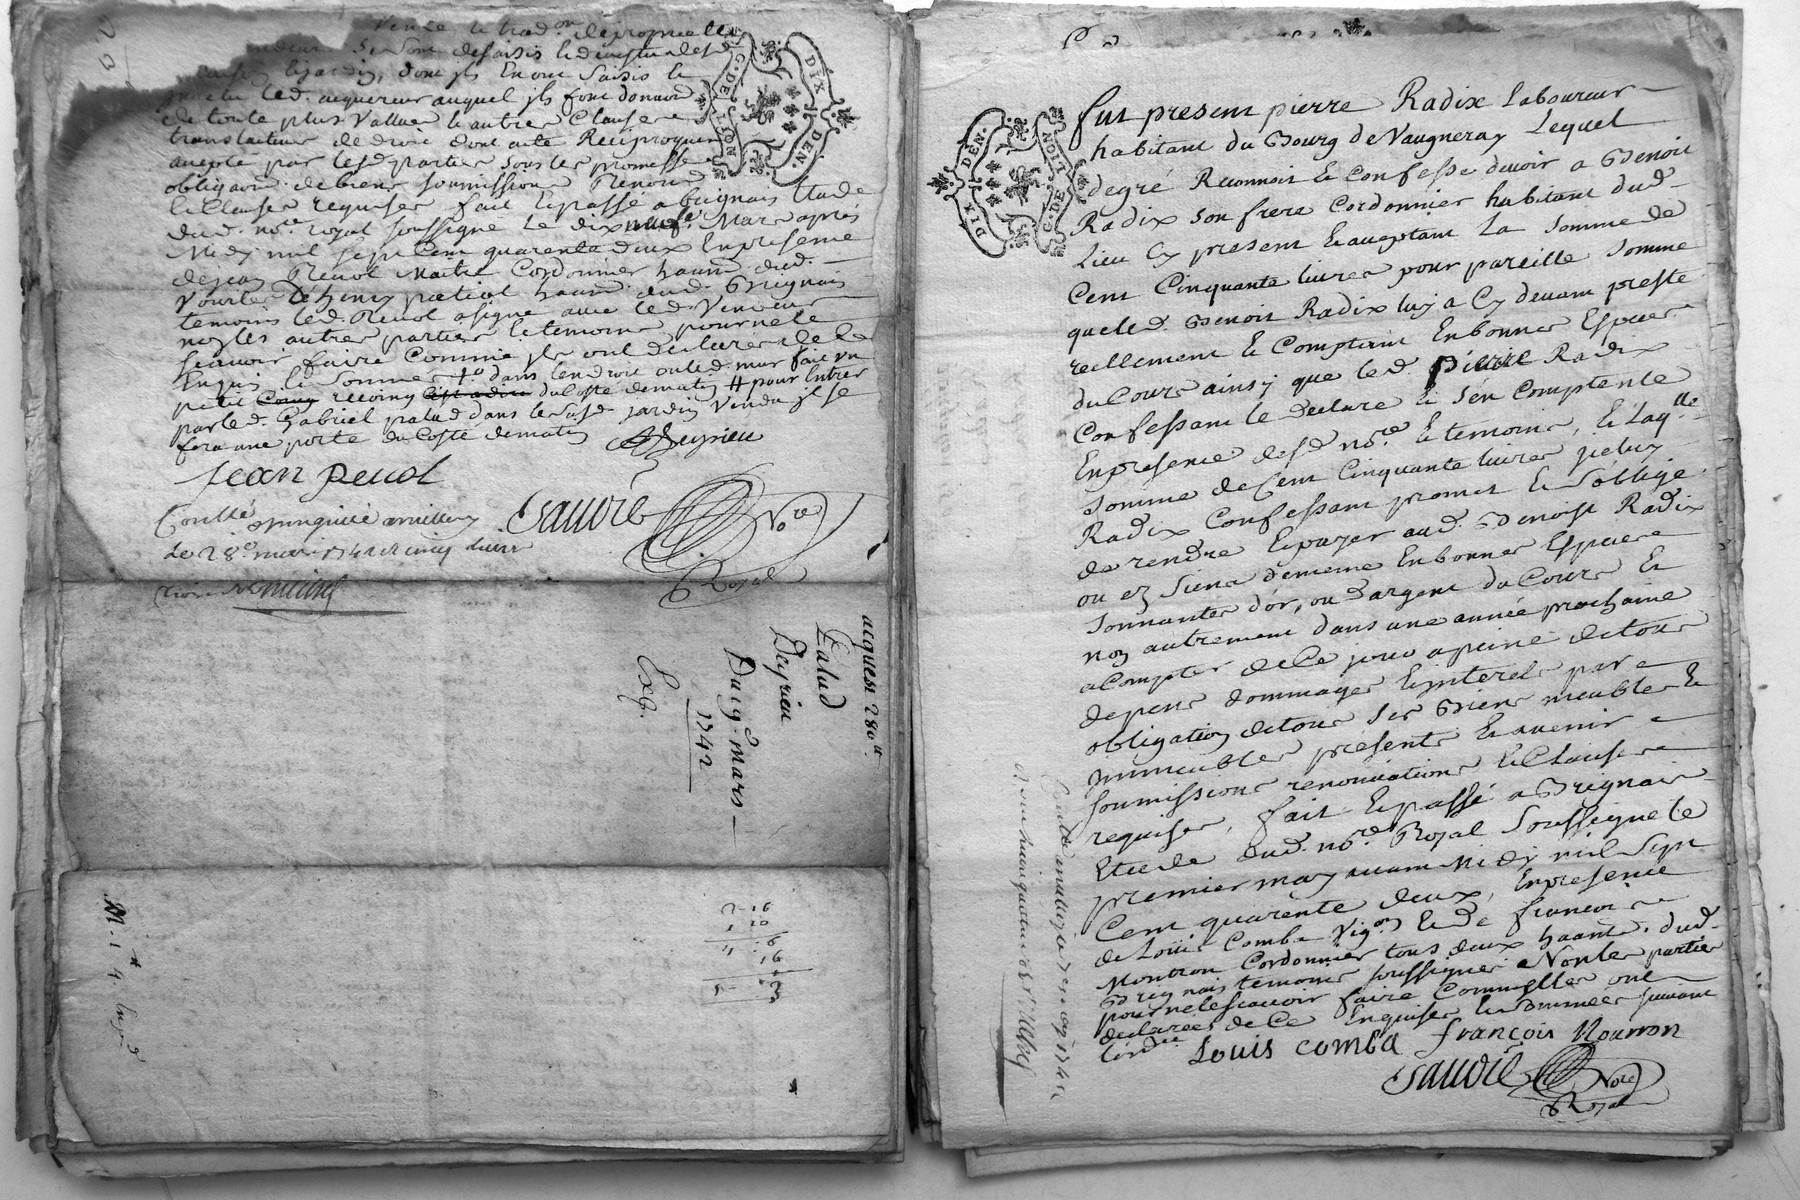 vente
se sont desaisis
dont ils en ont saisis le
led. acquereur auquel ils font donaõn
de toute plus vallue & autres clauses
translatives de droit dont acte Reciproquem
accepté par lesd. parties sous les promesses
obligaõns de biens soumissions Renonõns
& clauses requises fait & passé a brignais Etude
dud. no.re royal soussigné le dix neuf.e Mars après
Midy mil sept cent quarente deux En presence
de jean Revol Maitre Cordonnier haant dud.
temoins led. Revol a signé avec led. Vendeur
non les autres parties & temoins pour ne le
scavoir faire Comme ils ont declarés de ce
Enquis & sommés dans lendroit outre d. mur fait un
petit recoing du Costé de matin # pour Entrer
par led. Gabriel palud dans le susd. jardin Vendu il se
fera une porte du Costé de matin
Jean Revol
Gauvré No.re
Royal
Controllé
le 28.e mars 1742
acquest 280.tt
Palud
Deyrieu
Du 19.e mars
1742
Exp.
DIX DEN.
G. DE LION
DIX DEN.
G. DE LION
fut present pierre Radix Laboureur
habitant du Bourg de Vaugneray Lequel
de gré Reconnoit & Confesse devoir a Benoit
Radix son frere Cordonnier habitant dud.
Lieu Cy present & acceptant La somme de
Cent Cinquante livres pour pareille somme
que led. Benoit Radix luy a Cy devant presté
reellement & Comptant En bonnes Especes
du Cours ainsy que led. pierre Radix
Confessant le declare & s'en Contente
En presence desd. no.re & temoins, & Laq.lle
somme de Cent Cinquante livres jceluy
Radix Confessant promet & s'oblige
de rendre & payer aud. Benoist Radix
ou es siens de meme En bonnes Especes
sonnantes d'or, ou d'argent du Cours &
non autrement dans une année prochaine
a Compter de Ce jour a peine de tous
depens dommages & jnterets par
obligation de tous ses Biens meubles &
jmmeubles presents & avenir
soumissions renonciations & Clauses
requises, fait & passé a Brignais
Etude dud. no.re Royal soussigné le
premier may avant Midy mil sept
Cent quarente deux, En presence
de Louis Comba vig.on & de françois
Mouron Cordonnier tous deux haants dud.
Brignais temoins soussignés & Non les parties
pour ne le scavoir faire Comme elles ont
declarées de Ce Enquises & sommées suivant
Lord.ce
Louis comba françois Mouron
Gauvré No.re
Royal